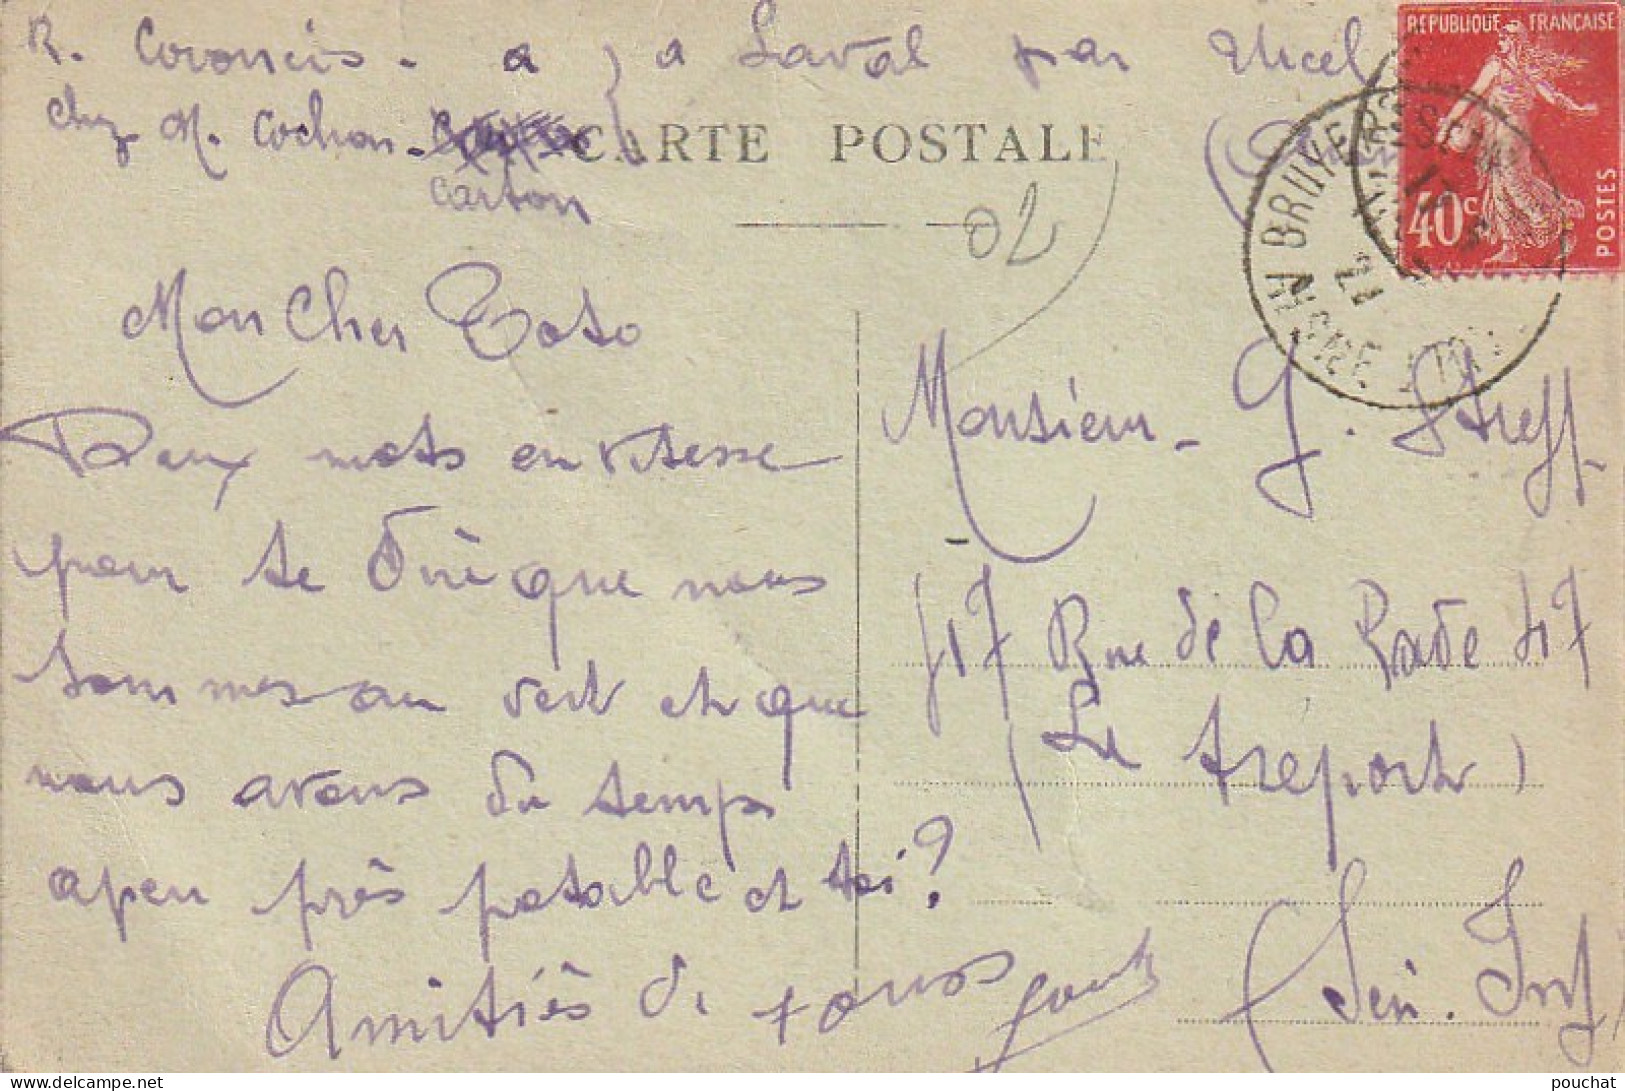 R. Coroncis - a ) a Laval par Urcel
chez M. Cochon -
Carton
CARTE POSTALE
02
REPUBLIQUE FRANÇAISE
40c
POSTES
BRUYERES
AISNE
Mon Cher Toto
Deux mots en vitesse
pour te dire que nous
sommes au vert et que
nous avons du temps
a peu près potable et toi?
Amitiés de tous
Monsieur - G. Streff
47 Rue de la Rade 47
(Le treport)
(Sei. Inf)
pouchat